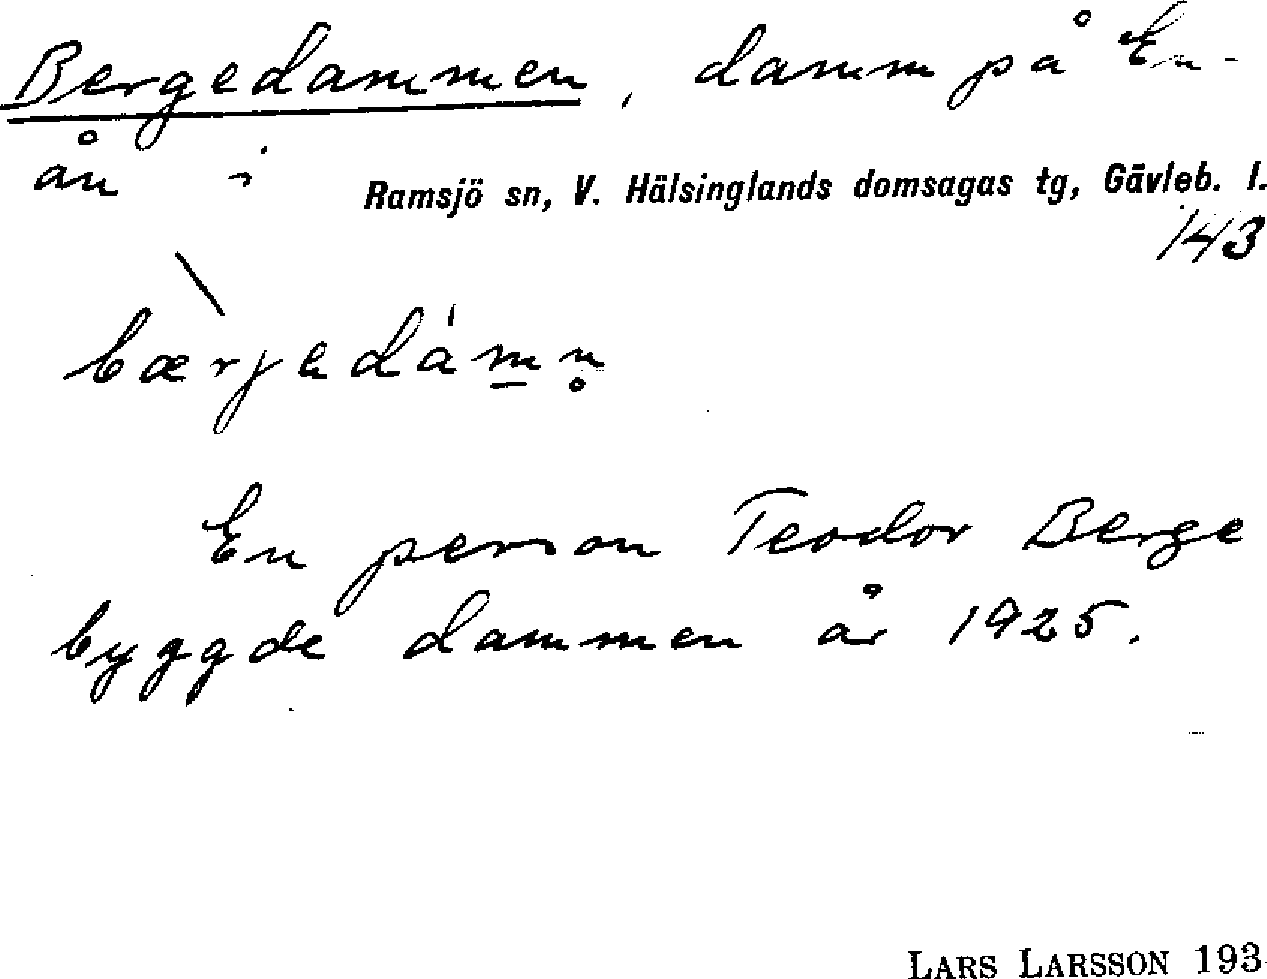 Bergedammen, damm på En-
ån i Ramsjö sn, V. Hälsinglands domsagas tg, Gävleb. l.
143
bæ̀rjedám̲n̥
En person Teodor Berge
byggde dammen år 1925.
LARS LARSSON 193